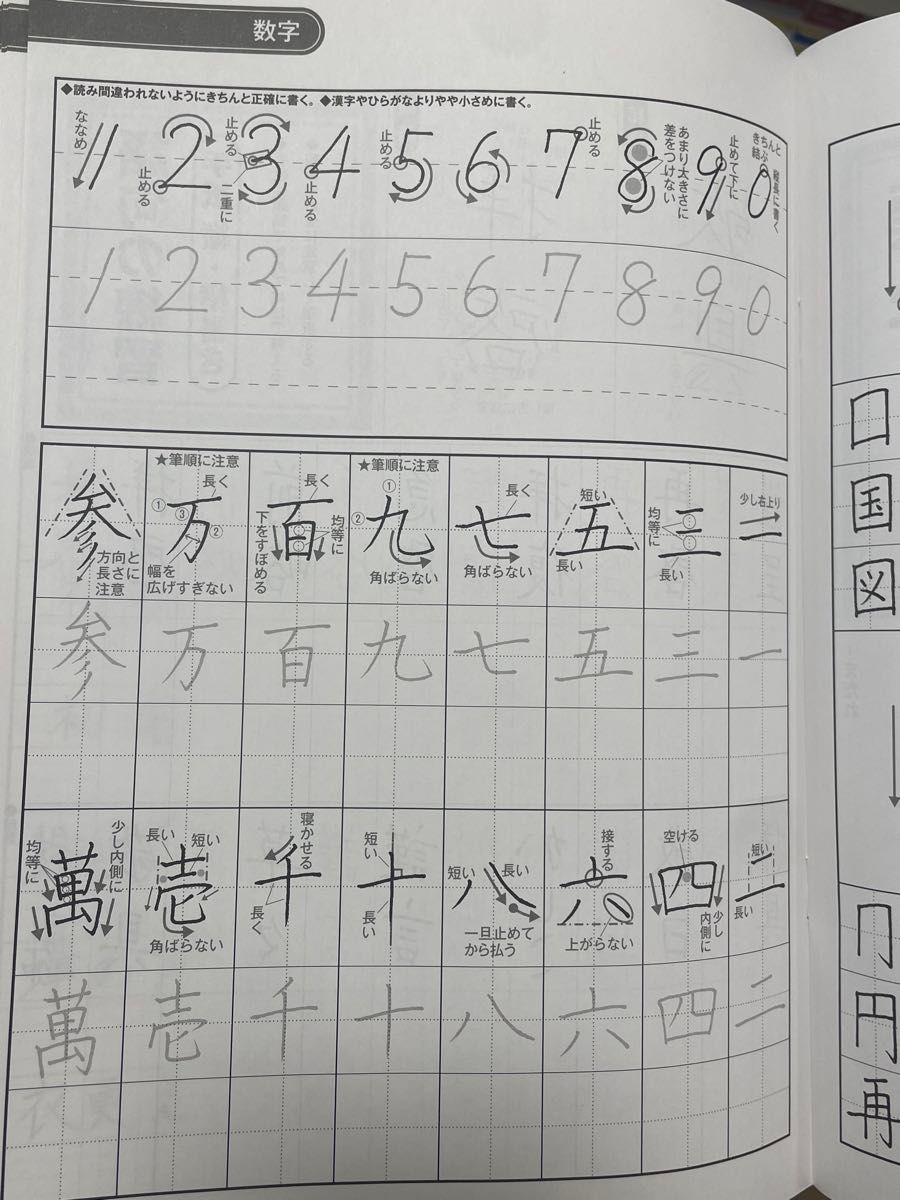 数字
◆読み間違われないようにきちんと正確に書く。◆漢字やひらがなよりやや小さめに書く。
ななめ
止める
止める
二重に
止める
止める
止める
あまり大きさに
差をつけない
止めて下に
きちんと
き結ぶ
縦長に書く
1 2 3 4 5 6 7 8 9 0
1 2 3 4 5 6 7 8 9 0
一
少し右上り
三
均等に
長い
五
短い
長い
七
長く
角ばらない
★筆順に注意
九
①
②
角ばらない
百
長く
均等に
下をすぼめる
★筆順に注意
万
長く
①
②
③
幅を
広げすぎない
参
方向と
長さに
注意
参 万 百 九 七 五 三 一
二
短い
長い
四
空ける
少し
内側に
六
接する
上がらない
八
短い
長い
一旦止めて
から払う
十
短い
長い
千
寝かせる
長く
壱
長い
短い
角ばらない
萬
少し内側に
均等に
萬 壱 千 十 八 六 四 二
口
国
図
冂
円
再